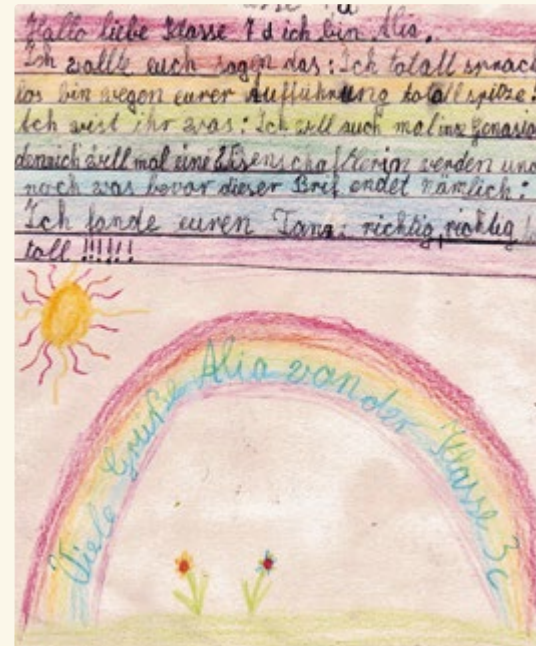 Hallo liebe Klasse 7d ich bin Alia.
Ich wollte euch sagen das: Ich totall sprach
los bin wegen eurer Aufführung totall spitze!
Ach wist ihr was: Ich will auch mal ins
denn ich will mal eine Wisenschaftlerin werden und
noch was bevor dieser Brif endet nämlich:
Ich fande euren Tanz: richtig, richtig
toll !!!!!!
Viele Grüße Alia von der Klasse 3c